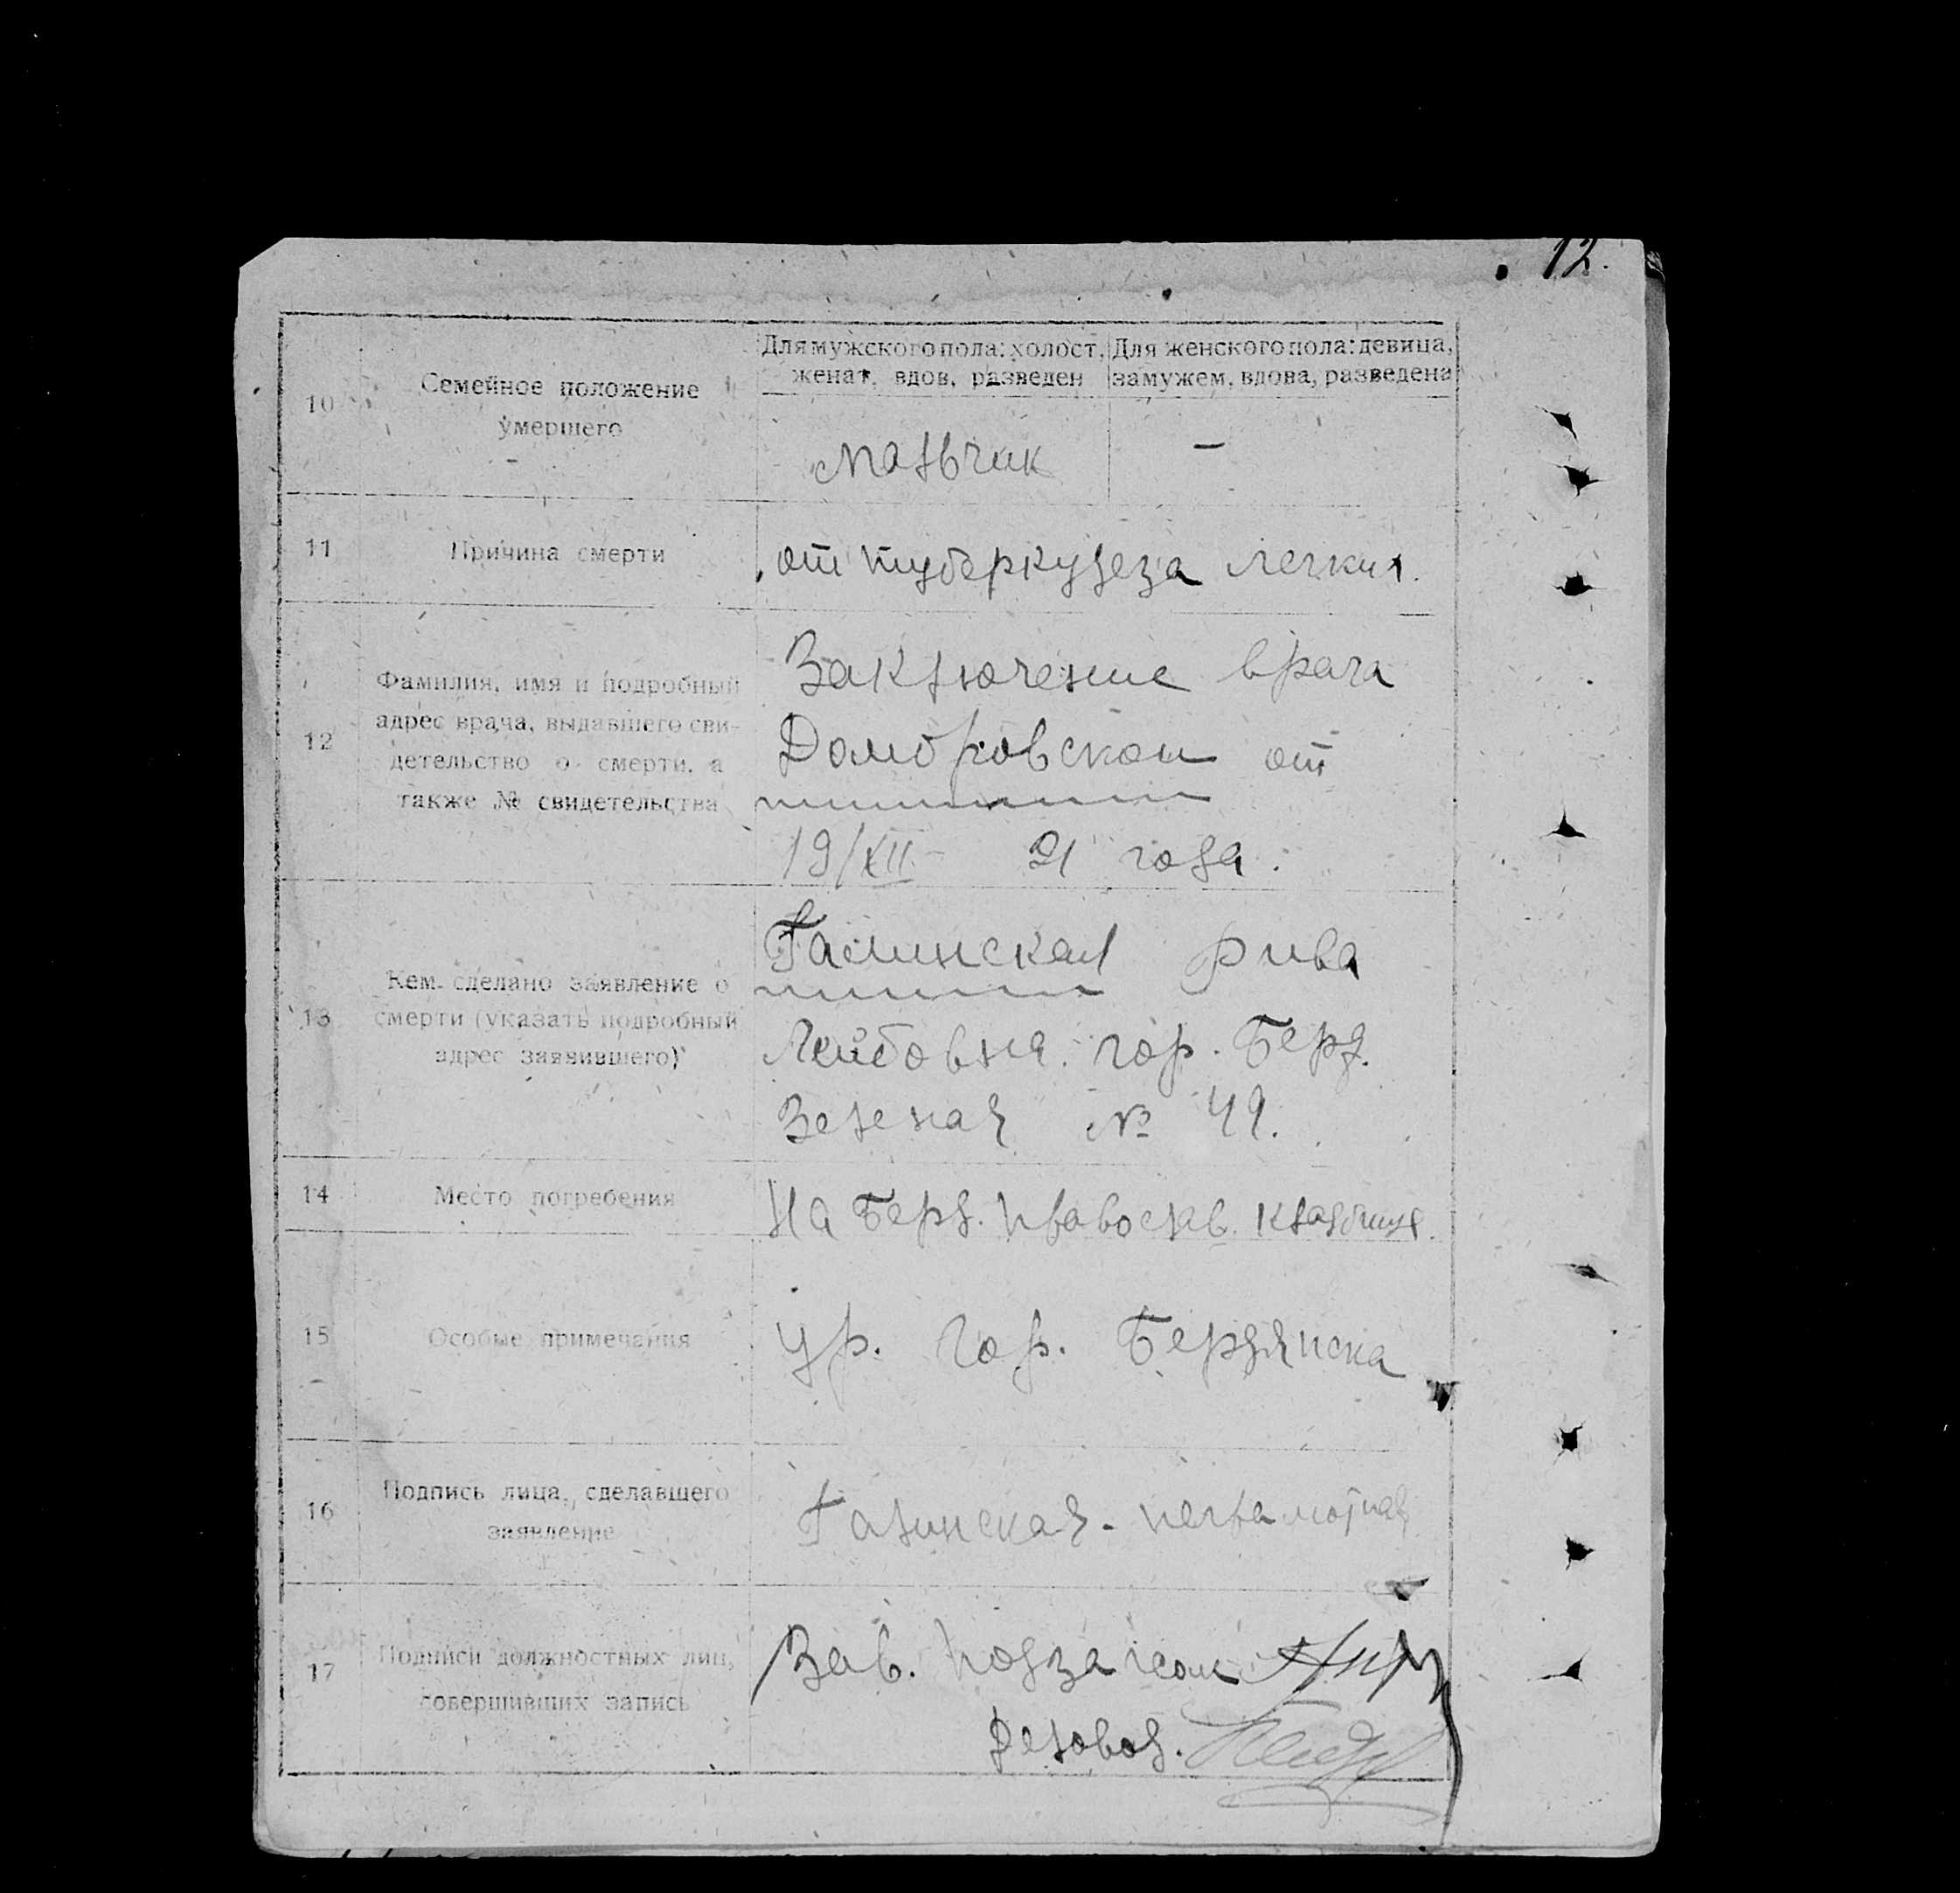 12.
10
Семейное положение
умершего
Для мужского пола: холост,
женат, вдов, разведен
Для женского пола: девица,
замужем, вдова, разведена
мальчик
—
11
Причина смерти
от туберкулеза легких.
12
Фамилия, имя и подробный
адрес врача, выдавшего сви-
детельство о смерти, а
также № свидетельства
Заключение врача
Домбровской от
19/XII- 21 года.
13
Кем сделано заявление о
смерти (указать подробный
адрес заявившего)
Галинская Рива
Лейбовна. гор. Берд.
Зеленая № 49.
14
Место погребения
На Берд. православ. кладбище.
15
Особые примечания
Ур. гор. Бердянска
16
Подпись лица, сделавшего
заявление
Галинская - неграмотная
17
Подписи должностных лиц,
совершивших запись
Зав. подзагсом
Деловод.